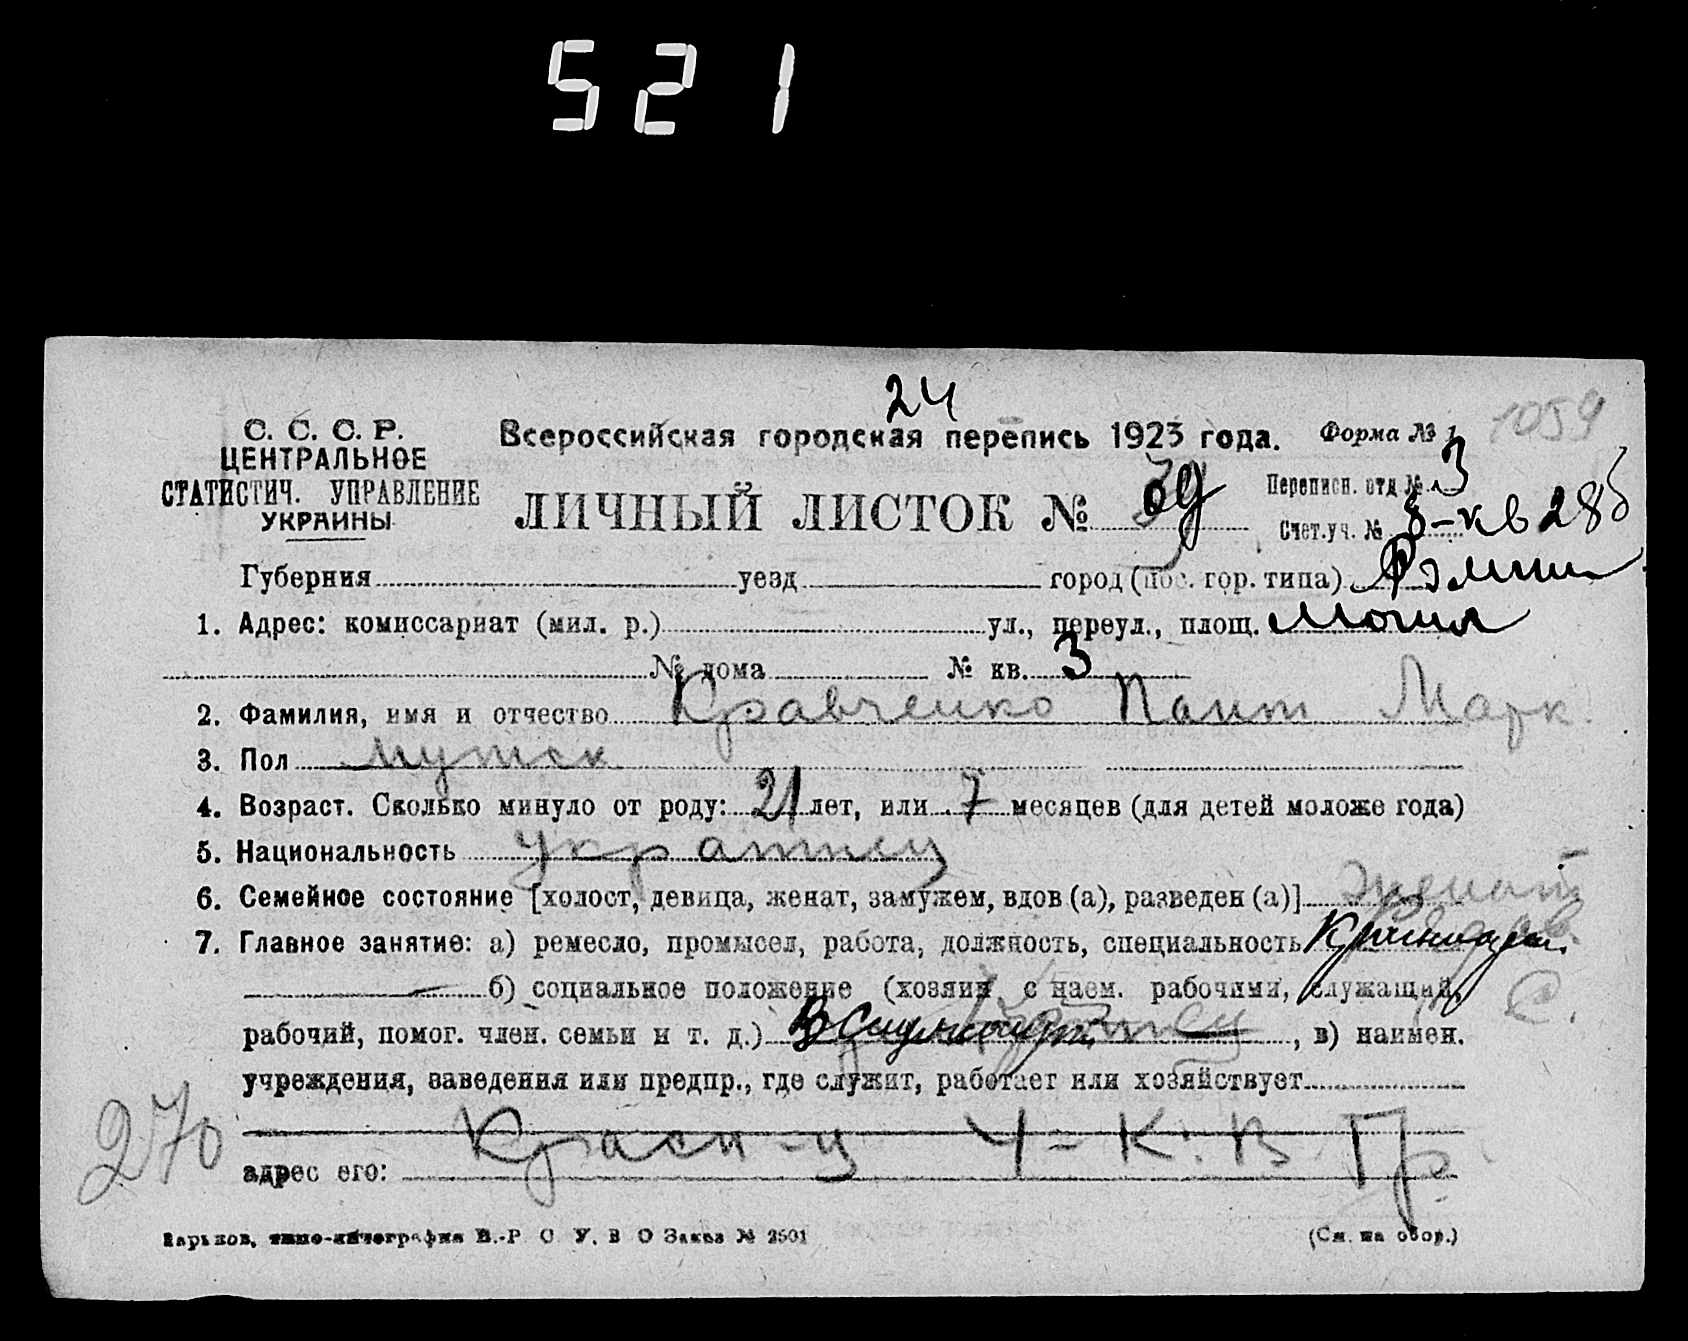 521
24
С. С. С. Р.
ЦЕНТРАЛЬНОЕ
СТАТИСТИЧ. УПРАВЛЕНИЕ
УКРАИНЫ
Всероссийская городская перепись 1923 года.
Форма № 1
1059
ЛИЧНЫЙ ЛИСТОК №
Переписн. отд № 3
Счет.уч. № 8-кв 285
Губерния уезд город (пос. гор. типа)
1. Адрес: комиссариат (мил. р.) ул., переул., площ. Могил
№ дома № кв. 3
2. Фамилия, имя и отчество Кравченко Пант Марк.
3. Пол мужск.
4. Возраст. Сколько минуло от роду: 21 лет, или 7 месяцев (для детей моложе года)
5. Национальность
6. Семейное состояние [холост, девица, женат, замужем, вдов (а), разведен (а)] женат
7. Главное занятие: а) ремесло, промысел, работа, должность, специальность
б) социальное положение (хозяин с наем. рабочими, служащий,
рабочий, помог. член. семьи и т. д.) , в) наимен.
учреждения, заведения или предпр., где служит, работает или хозяйствует
Красн-ц 4-К.В.Гр.
адрес его:
270
Харьков, типо-литография В.-Р С У. В О Заказ № 2501
(См. на обор.)